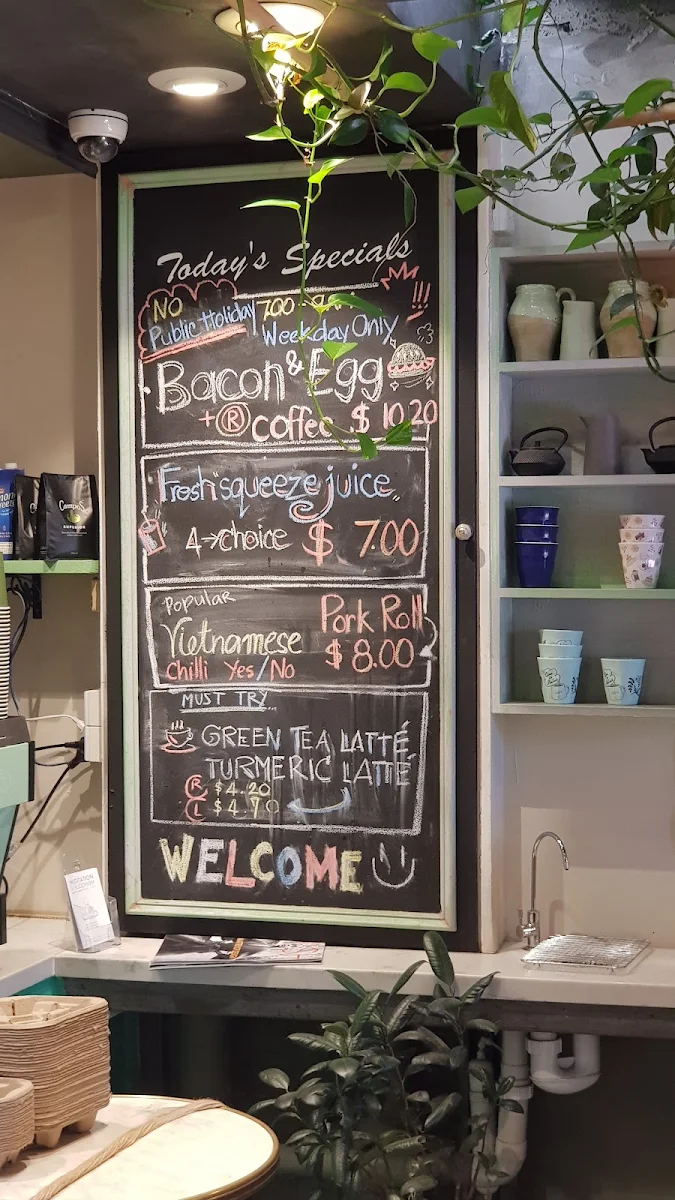 Today's Specials
NO
Public Holiday
700
Weekday Only
Bacon & Egg
+ R coffee $ 10.20
Fresh "squeeze juice"
4→choice $ 7.00
POPULAR
Vietnamese
Chilli Yes/No
Pork Roll
$ 8.00
MUST TRY
GREEN TEA LATTÉ
TURMERIC LATTÉ
R $4.20
L $4.70
WELCOME
Campos
SUPERIOR